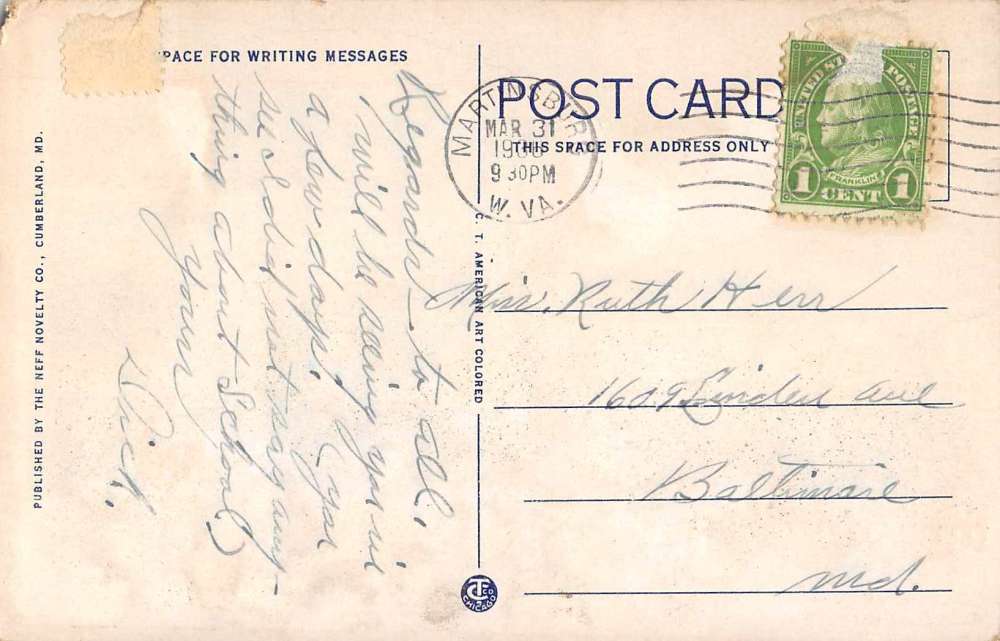 SPACE FOR WRITING MESSAGES
Regards to all.
I will be seeing you in
a few days. (you
see I did not say any-
thing about School)
Yours
Dick.
PUBLISHED BY THE NEFF NOVELTY CO., CUMBERLAND, MD.
C. T. AMERICAN ART COLORED
CTCO
CHICAGO
POST CARD
THIS SPACE FOR ADDRESS ONLY
MARTINSBURG
MAR 31
9 30PM
W. VA.
UNITED STATES POSTAGE
FRANKLIN
1 CENT 1
Miss. Ruth Herr
1609 Linden Ave
Baltimore
Md.